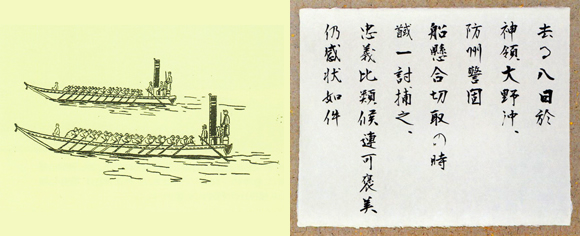 去る八日於
神領大野沖、
防州警固
船懸合切取の時
馘一討捕之、
忠義比類候連可褒美
仍感状如件